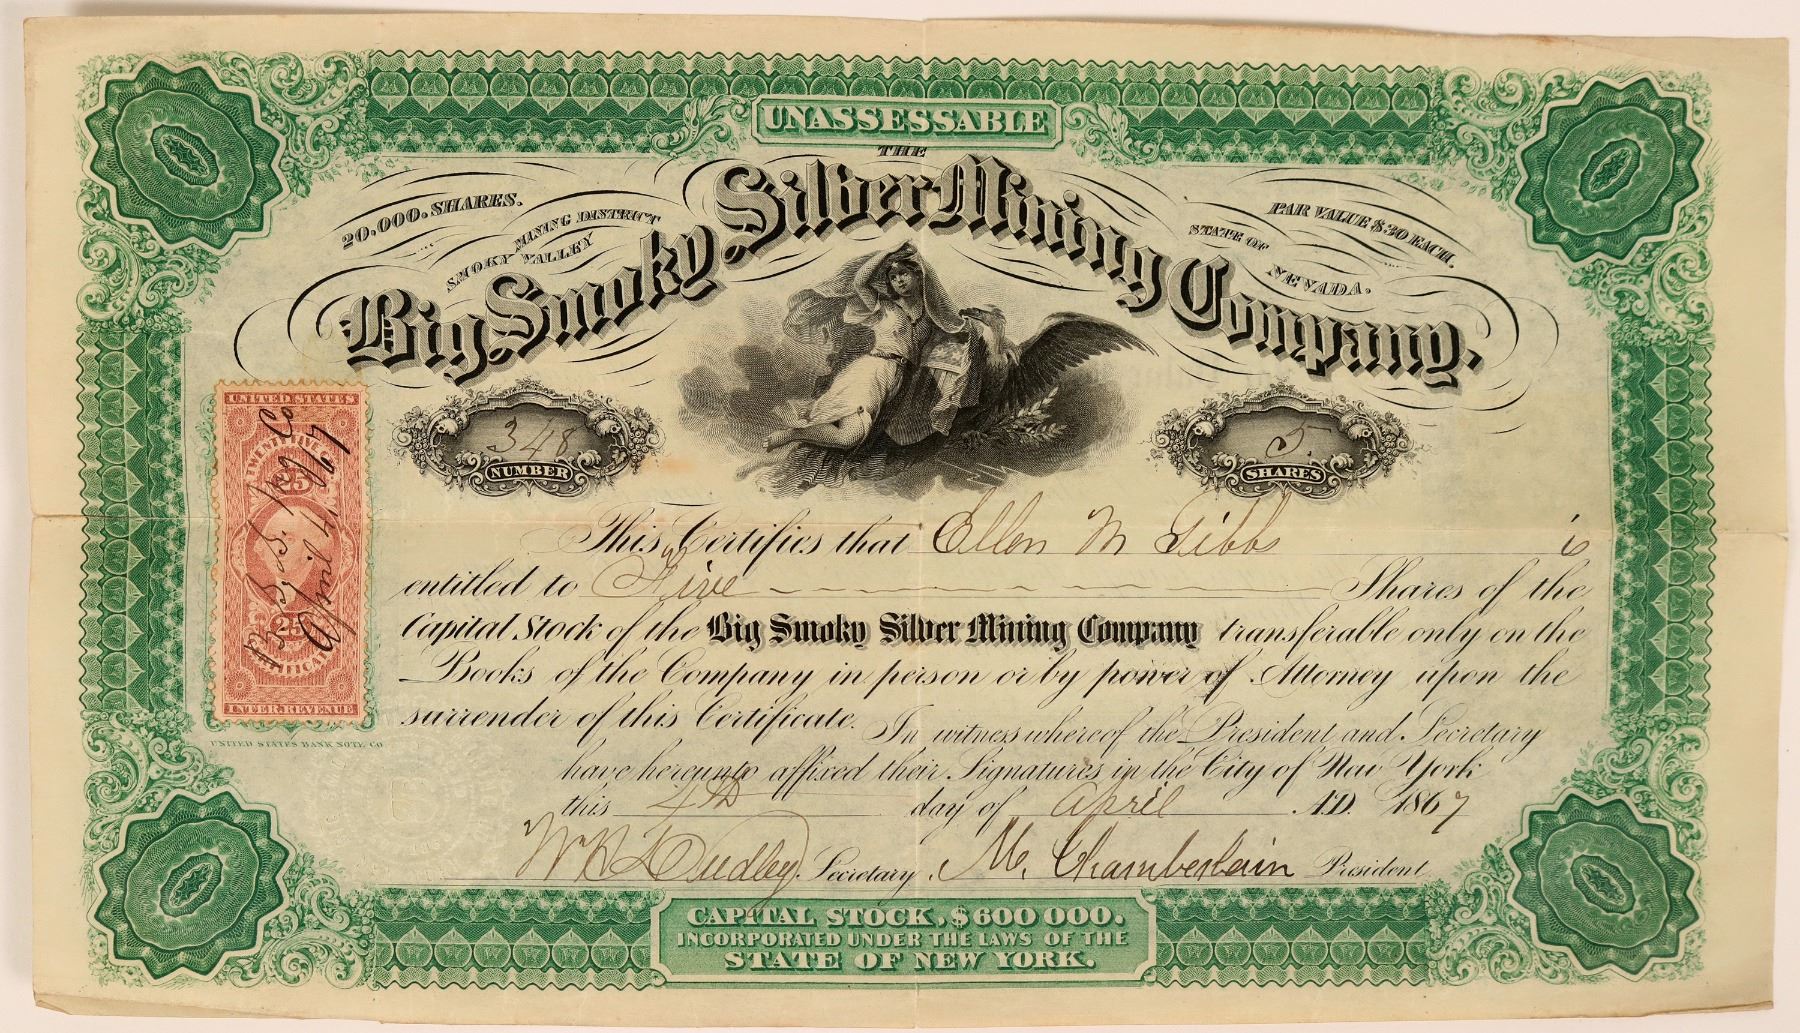 UNASSESSABLE
THE
20,000. SHARES.
SMOKY VALLEY MINING DISTRICT
STATE OF NEVADA.
PAR VALUE $30 EACH.
Big Smoky Silver Mining Company.
348
NUMBER
5
SHARES
UNITED STATES
TWENTY FIVE
25
25
CERTIFICATE
INTER. REVENUE
April 4 1867
UNITED STATES BANK NOTE CO
This Certifies that Ellen M Gibbs is
entitled to Five Shares of the
Capital Stock of the Big Smoky Silver Mining Company transferable only on the
Books of the Company in person or by power of Attorney upon the
surrender of this Certificate. In witness whereof the President and Secretary
have hereunto affixed their Signatures in the City of New York
this 4th day of April A.D. 1867
W H Dudley Secretary. M. Chamberlain President
CAPITAL STOCK, $600 000.
INCORPORATED UNDER THE LAWS OF THE
STATE OF NEW YORK.